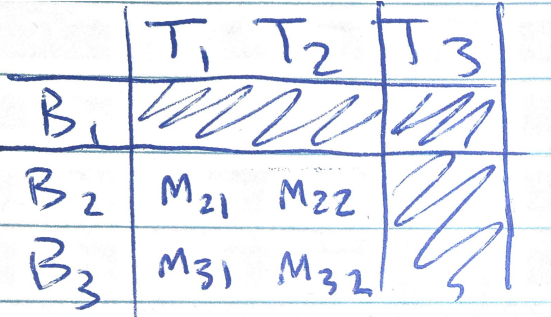 T₁ T₂ T₃
B₁
B₂ M₂₁ M₂₂
B₃ M₃₁ M₃₂